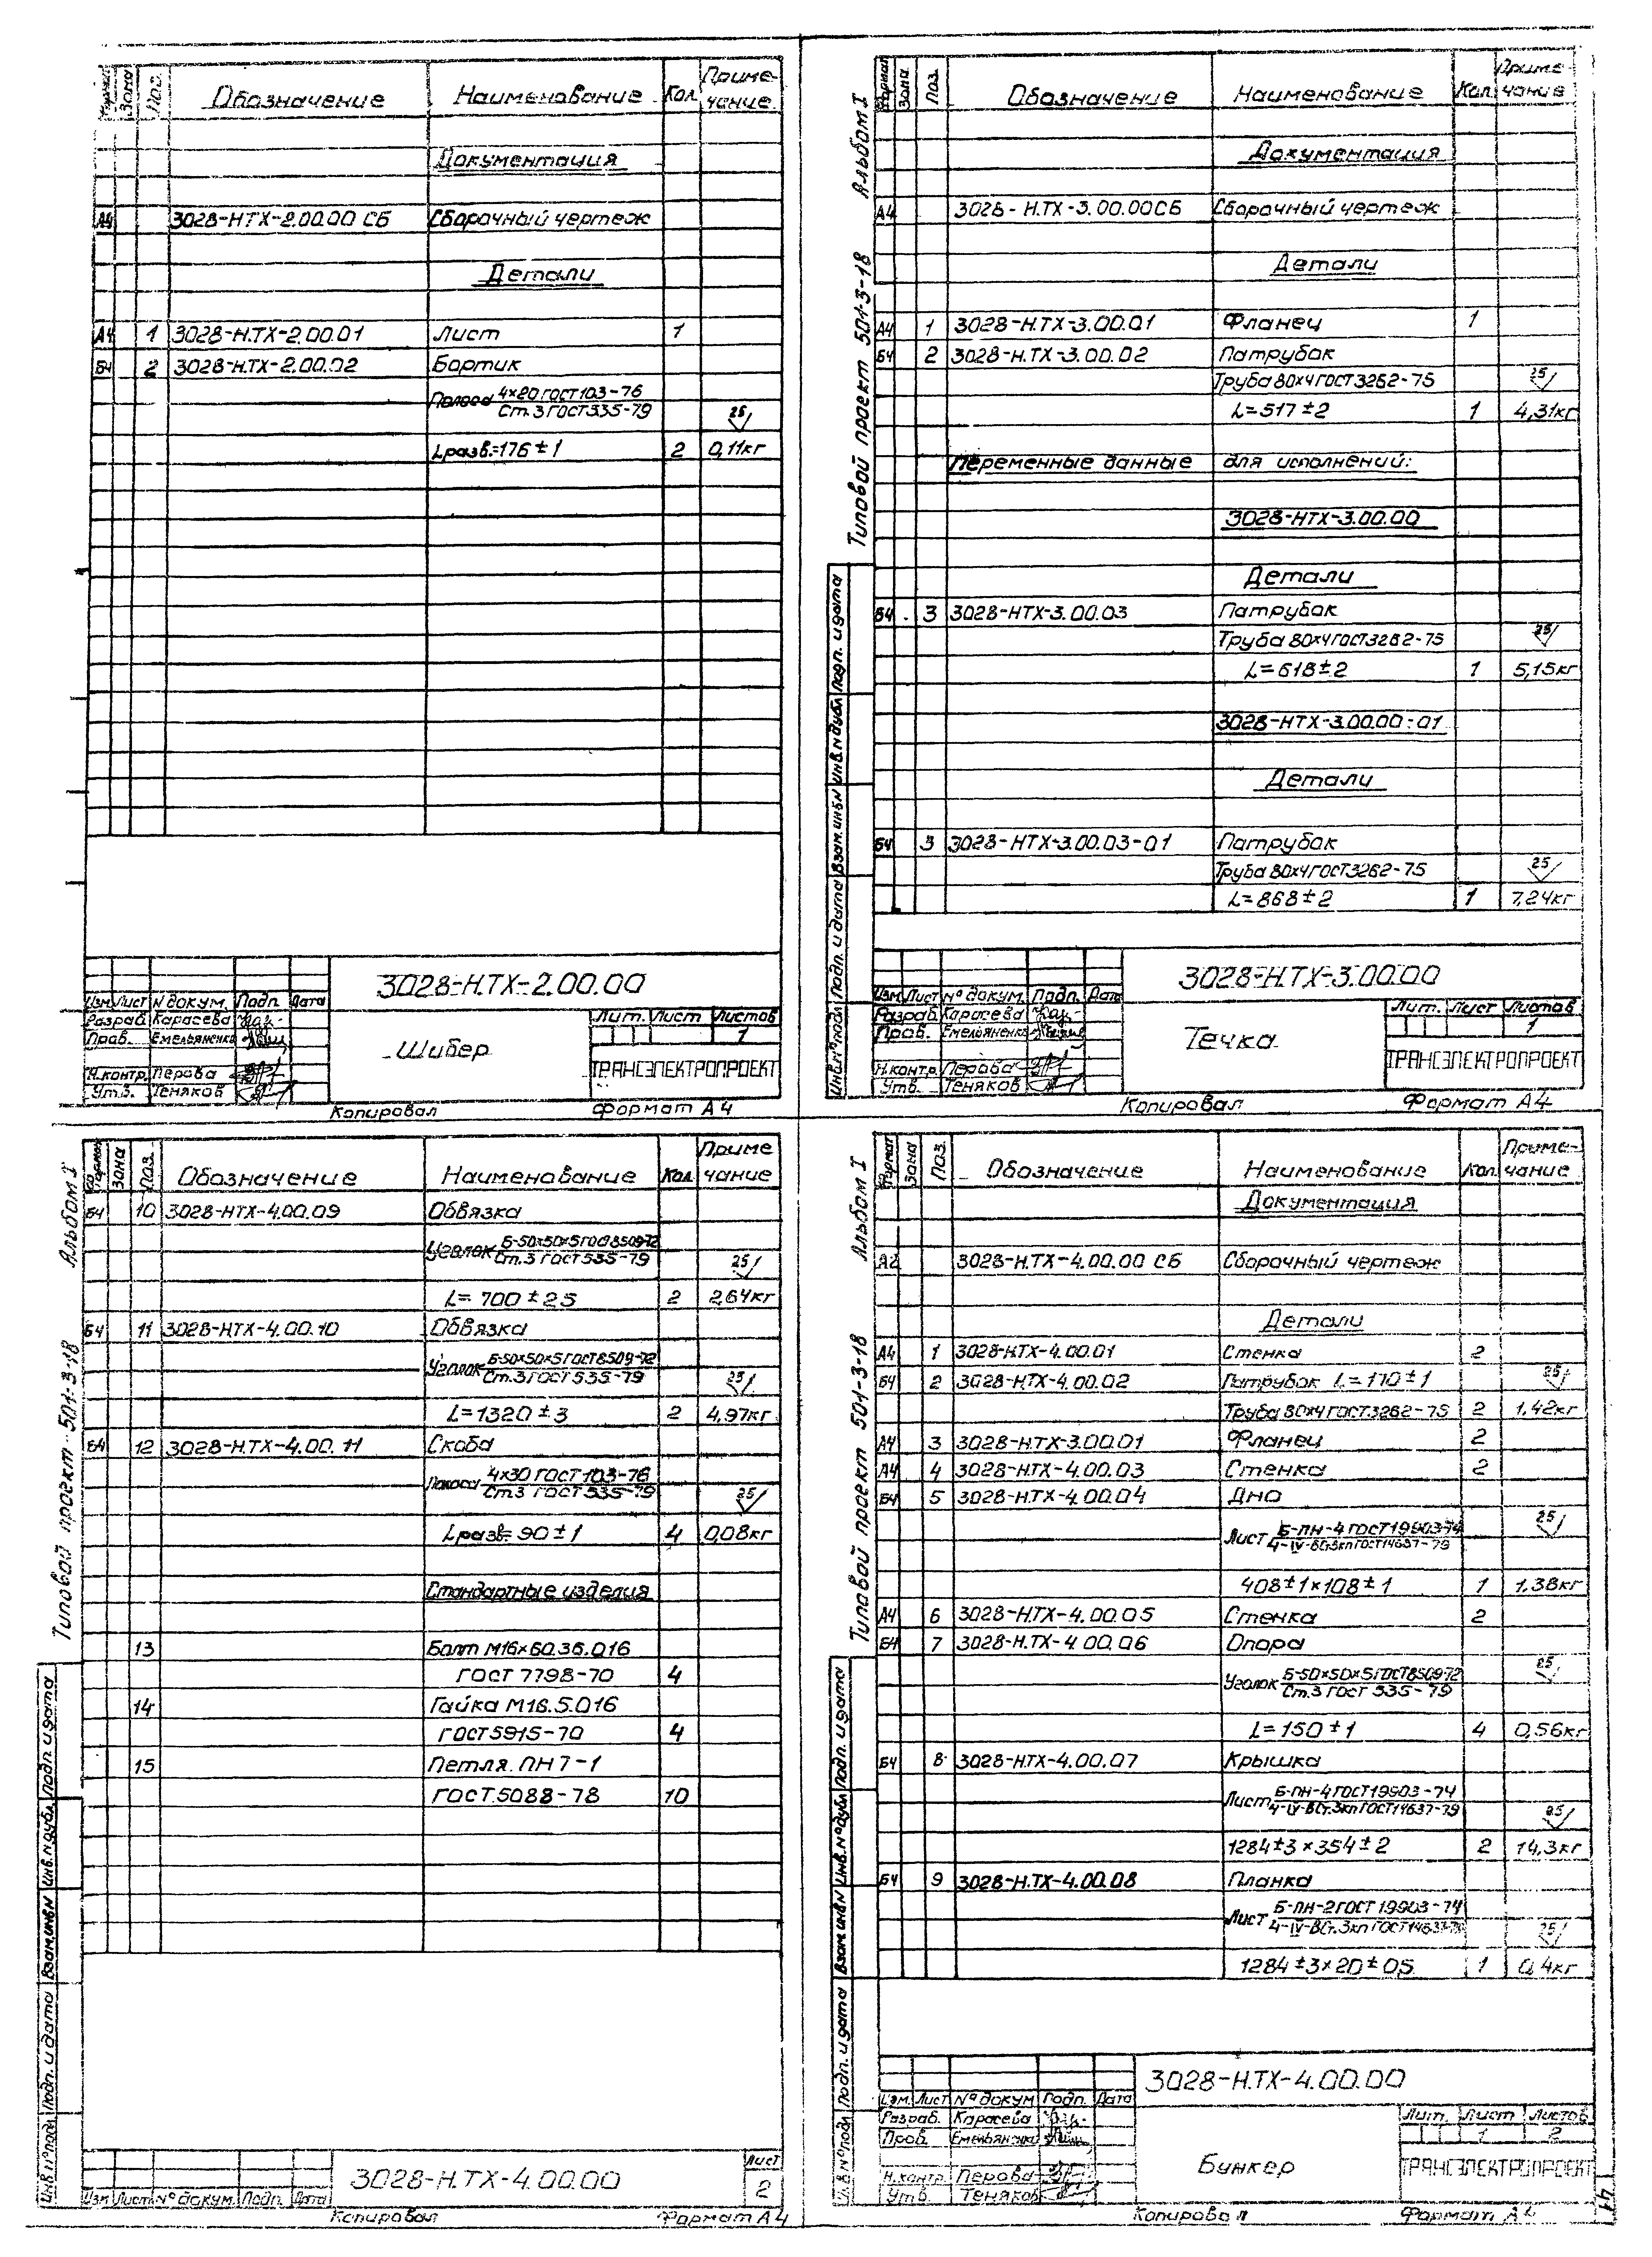 Формат Зона Поз. Обозначение Наименование Кол. Приме-
чание
Документация
А4 3028-НТХ-2.00.00 СБ Сборочный чертеж
Детали
А4 1 3028-Н.ТХ-2.00.01 Лист 1
Б4 2 3028-Н.ТХ-2.00.02 Бортик
Полоса 4×20 ГОСТ 103-76
Ст.3 ГОСТ 535-79 25
Lразв.=176±1 2 0,11кг
3028-Н.ТХ-2.00.00
Изм Лист N докум. Подп. Дата
Разраб. Карасева
Пров. Емельяненко
Н.контр. Перова
Утв. Теняков
Шибер
Лит. Лист Листов
1
ТРАНСЭЛЕКТРОПРОЕКТ
Копировал Формат А4
Типовой проект 501-3-18 Альбом I
Формат Зона Поз. Обозначение Наименование Кол. Приме-
чание
Документация
А4 3028-Н.ТХ-3.00.00СБ Сборочный чертеж
Детали
А4 1 3028-Н.ТХ-3.00.01 Фланец 1
Б4 2 3028-Н.ТХ-3.00.02 Патрубок
Труба 80×4 ГОСТ 3262-75 25
L=517±2 1 4,31кг
Переменные данные для исполнений:
3028-НТХ-3.00.00
Детали
Б4 3 3028-НТХ-3.00.03 Патрубок
Труба 80×4 ГОСТ.3262-75 25
L=618±2 1 5,15кг
3028-НТХ-3.00.00-01
Детали
Б4 3 3028-НТХ-3.00.03-01 Патрубок
Труба 80×4 ГОСТ 3262-75 25
L=868±2 1 7,24кг
Инв.№подл. Подп. и дата Взам.инв.N Инв.N дубл. Подп. и дата
3028-Н.ТХ-3.00.00
Изм. Лист № докум. Подп. Дата
Разраб. Карасева
Пров. Емельяненко
Н.контр. Перова
Утв. Теняков
Течка
Лит. Лист Листов
1
ТРАНСЭЛЕКТРОПРОЕКТ
Копировал Формат А4
Типовой проект 501-3-18 Альбом I
Формат Зона Поз. Обозначение Наименование Кол. Приме
чание
Б4 10 3028-НТХ-4.00.09 Обвязка
Уголок Б-50×50×5 ГОСТ 8509-72
Ст.3 ГОСТ 535-79 25
L=700±2.5 2 2,64кг
Б4 11 3028-НТХ-4.00.10 Обвязка
Уголок Б-50×50×5 ГОСТ 8509-72
Ст.3 ГОСТ 535-79 25
L=1320±3 2 4,97кг
Б4 12 3028-Н.ТХ-4.00.11 Скоба
Полоса 4×30 ГОСТ 103-76
Ст.3 ГОСТ 535-79 25
Lразв.=90±1 4 0,08кг
Стандартные изделия
13 Болт М16×60.36.016
ГОСТ 7798-70 4
14 Гайка М16.5.016
ГОСТ 5915-70 4
15 Петля ПН7-1
ГОСТ.5088-78 10
Инв.№подл. Подп. и дата Взам.инв.N Инв.N дубл. Подп. и дата
3028-Н.ТХ-4.00.00
Изм Лист № докум. Подп. Дата
Лист
2
Копировал Формат А4
Типовой проект 501-3-18 Альбом I
Формат Зона Поз. Обозначение Наименование Кол. Приме-
чание
Документация
А2 3028-Н.ТХ-4.00.00 СБ Сборочный чертеж
Детали
А4 1 3028-Н.ТХ-4.00.01 Стенка 2
Б4 2 3028-Н.ТХ-4.00.02 Патрубок L=170±1 25
Труба 80×4 ГОСТ.3262-75 2 1,42кг
А4 3 3028-Н.ТХ-3.00.01 Фланец 2
А4 4 3028-Н.ТХ-4.00.03 Стенка 2
Б4 5 3028-Н.ТХ-4.00.04 Дно
Лист Б-ПН-4 ГОСТ 19903-74
4-IV-ВСт.3кп ГОСТ 14637-79 25
408±1×108±1 1 1,38кг
А4 6 3028-Н.ТХ-4.00.05 Стенка 2
Б4 7 3028-Н.ТХ-4.00.06 Опора
Уголок Б-50×50×5 ГОСТ 8509-72
Ст.3 ГОСТ 535-79 25
L=150±1 4 0,56кг
Б4 8 3028-НТХ-4.00.07 Крышка
Лист Б-ПН-4 ГОСТ 19903-74
4-IV-ВСт.3кп ГОСТ 14637-79 25
1284±3×354±2 2 14,3кг
Б4 9 3028-Н.ТХ-4.00.08 Планка
Лист Б-ПН-2 ГОСТ 19903-74
4-IV-ВСт.3кп ГОСТ 14637-79 25
1284±3×20±0,5 1 0,4кг
Инв.№подл. Подп. и дата Взам.инв.N Инв.№дубл. Подп. и дата
3028-Н.ТХ-4.00.00
Изм. Лист № докум Подп. Дата
Разраб. Карасева
Пров. Емельяненко
Н.контр. Перова
Утв. Теняков
Бункер
Лит. Лист Листов
1 2
ТРАНСЭЛЕКТРОПРОЕКТ
Копировал Формат А4